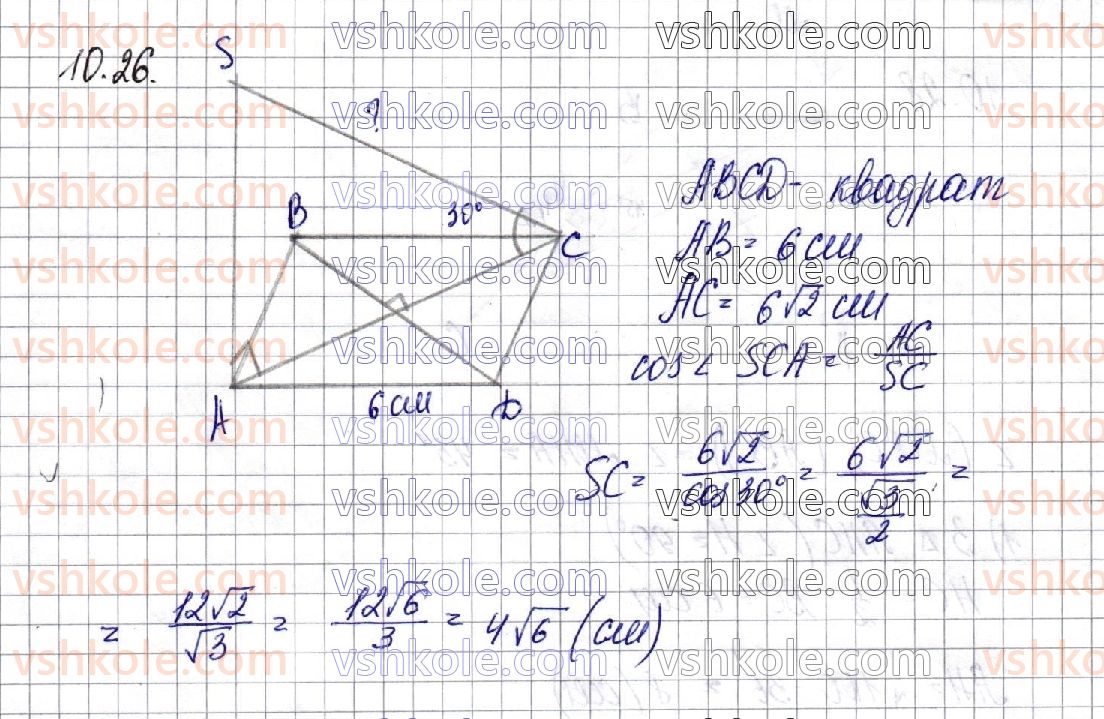 10.26.
S
?
B
30°
C
A
6 см
D
ABCD - квадрат
AB = 6 см
AC = 6√2 см
cos∠ SCA = AC/SC
SC = 6√2/cos30° = 6√2/(√3/2) =
= 12√2/√3 = 12√6/3 = 4√6 (см)
vshkole.com